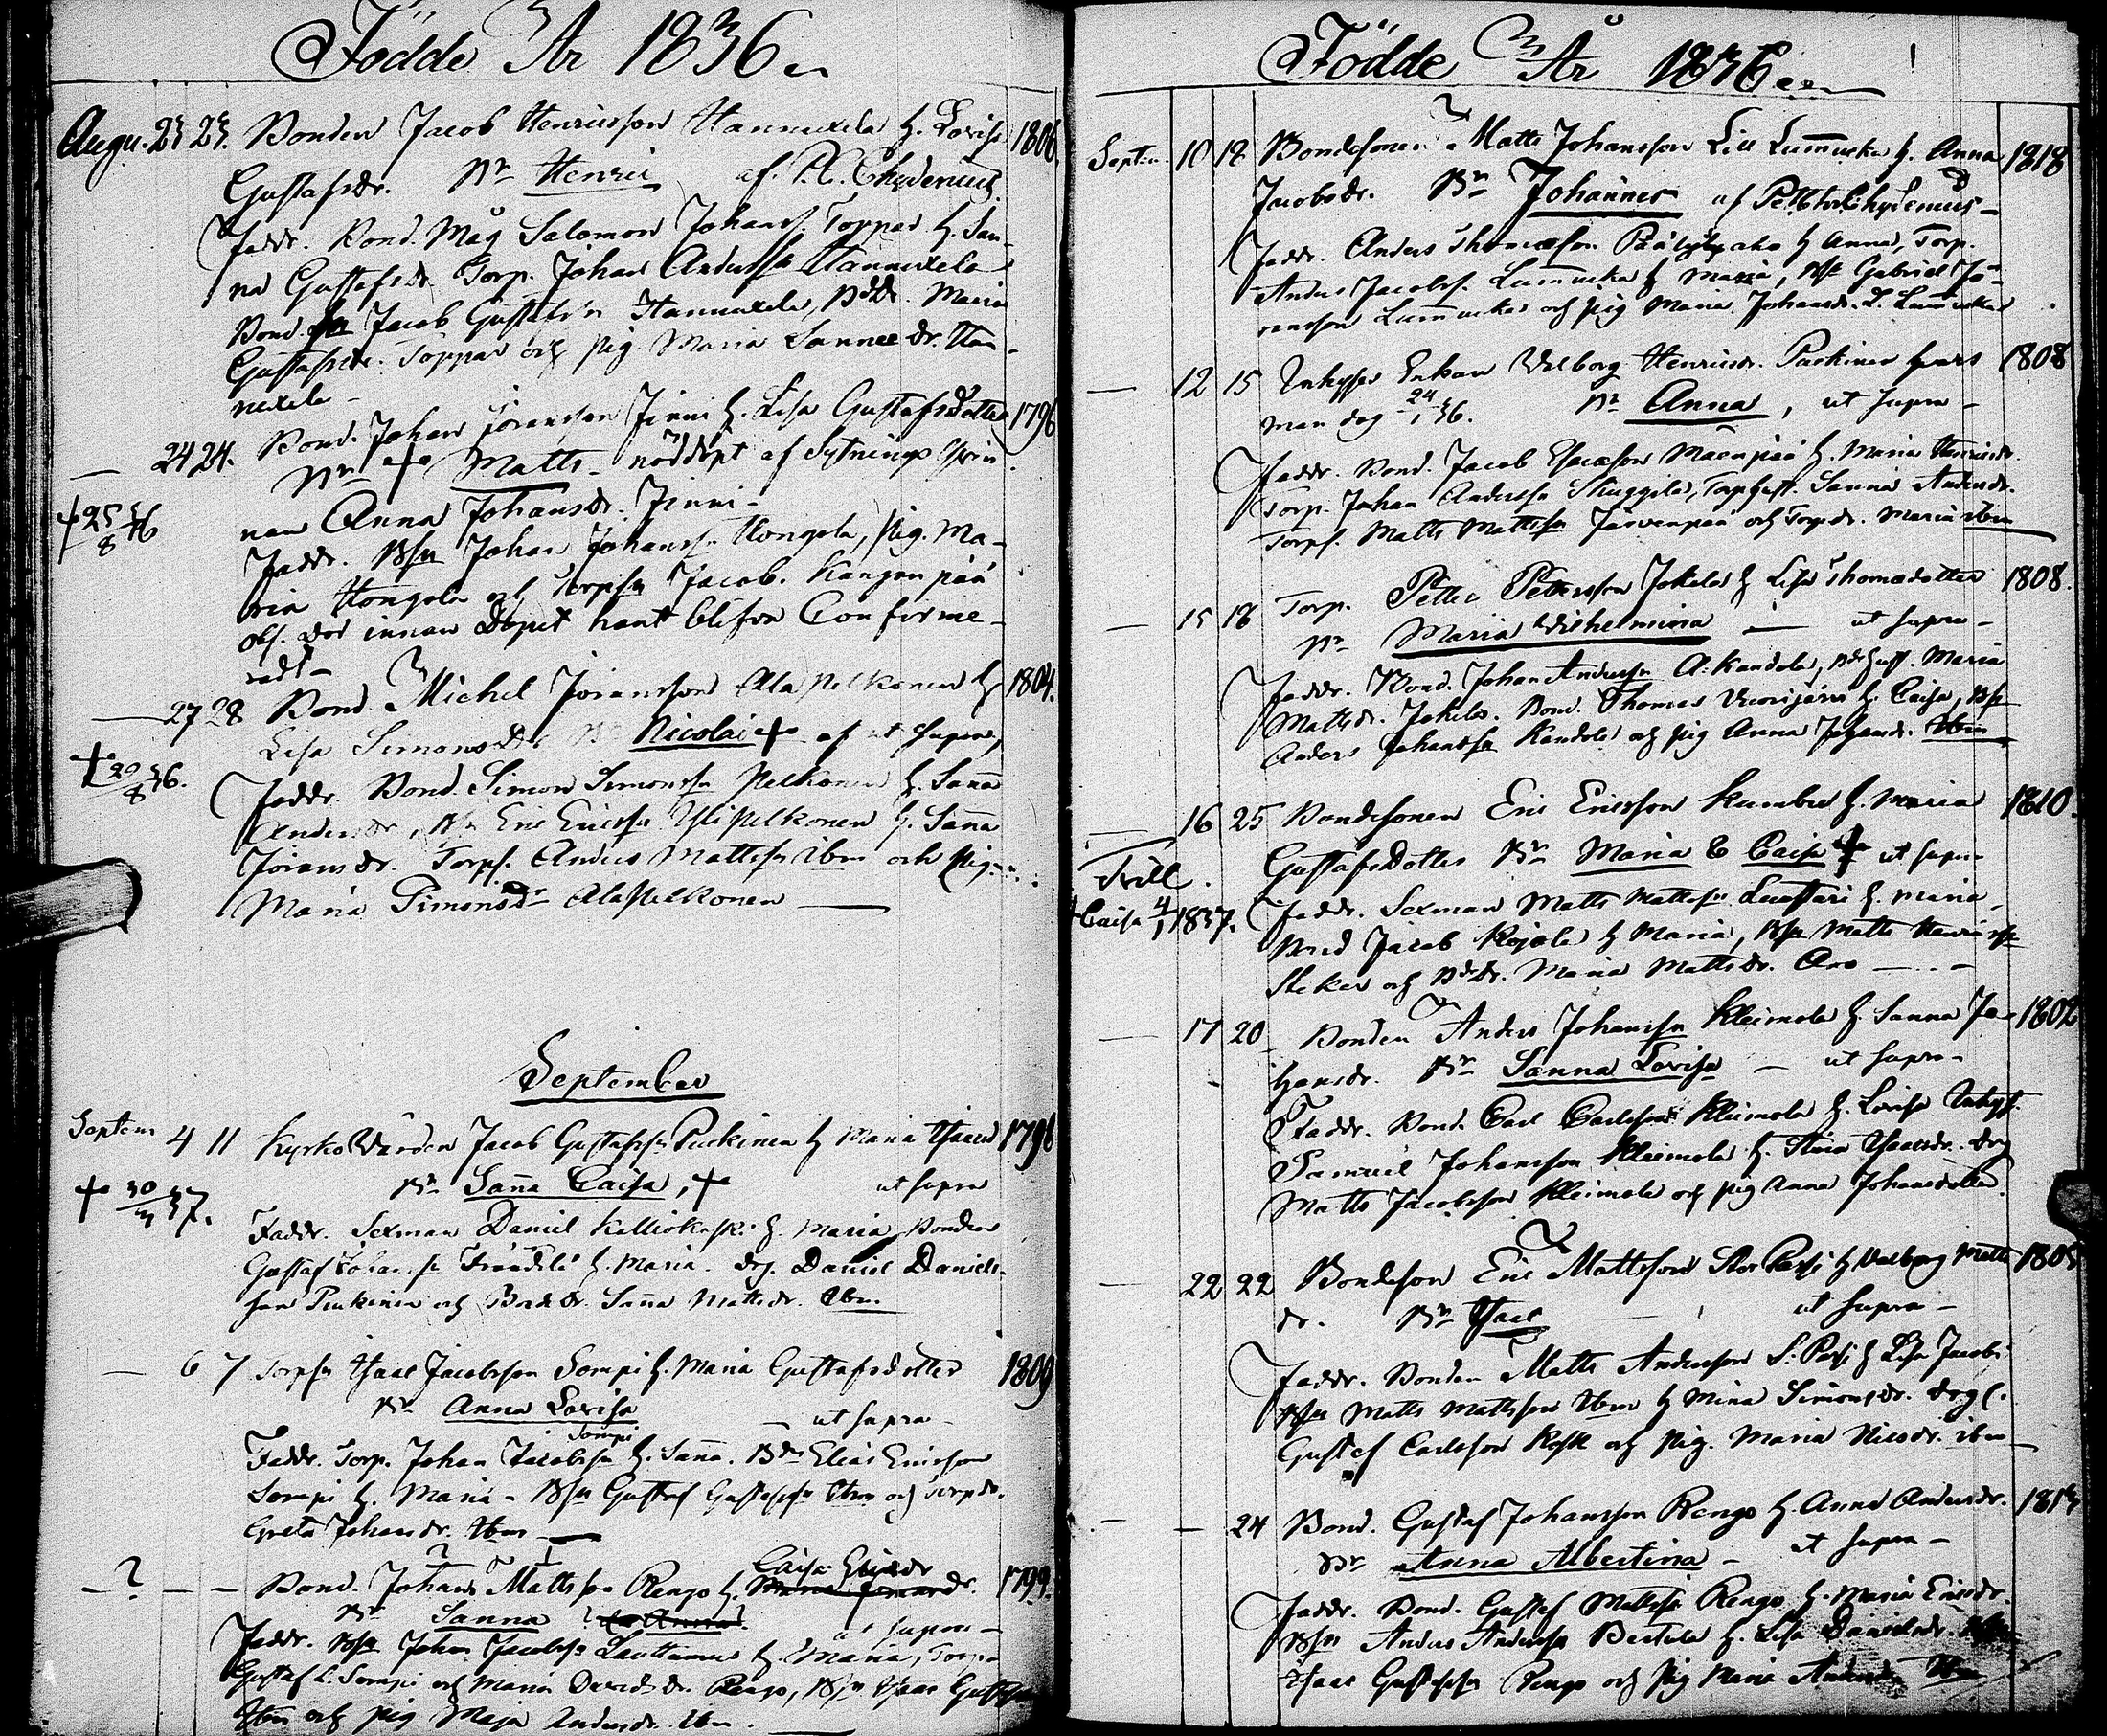 Födde År 1836
Augu. 23 23. Bonden Jacob Henricsson Hannuxela h. Lovisa 1806.
Gustafsdr. Bn Henric af P. C. Chydenius.
Faddr. Bond. Måg Salomon Johanss. Toppar h. San-
na Gustafsdr. Torp. Johan Anderssn Hannuxela
Bond. sn Jacob Gustafssn Hannuxela, Bd. Dr. Maria
Gustafsdr. Toppar och pig. Maria Sannee dr. Han-
nuxela -
24 24. Bond. Johan Göransson Jinni h. Lisa Gustafsdotter 1796
Bn + Matts - nöddöpt af Sytnings qvin-
† 25/8 36
nan Anna Johansdr. Jinni -
Faddr. BSn Johan Johanssn Hongola, pig. Ma-
ria Hongola och Torpsn Jacob. Kanganpää
obs. död innan Döpet hant blifva Confirme-
radt -
27 28 Bond. Michel Jöransson Ala Pelkonen h. 1804.
Lisa Simonsdr Bn Nicolai + af ut supra,
† 29/8 36.
Faddr. Bond. Simon Simonssn Pelkonen h. Sanna
Andersdr, BSn Eric Ericssn Ylipelkonen h. Sanna
Jöransdr. Torps. Anders Mattssn Ibm och Pig.
Maria Simonsdr Alapelkonen
September
Septem 4 11 Kyrko Värden Jacob Gustafssn Puckinen h Maria Isacsd 1796
† 30/3 37.
Bn Sanna Caisa, + ut supra
Faddr. Sexman Daniel Kalliokoski h. Maria, Bonden
Gustaf Johanssn h. Maria. Drg. Daniel Daniels-
son Puckinen och Bonddr. Sanna Mattsdr. Ibm
6 7 Torpsn Isaac Jacobsson Sompi h. Maria Gustafsdotter 1809
Bn Anna Lovisa - ut supra -
Sompi
Faddr. Torp. Johan Jacobssn h. Sanna. Bdn Elias Ericsson
Sompi h. Maria - BSn Gustaf Gustafssn Ibm och Torpdr.
Greta Johansdr. Ibm
- ? - - Bond. Johan Mattsson Rengo h. Caisa Ericsdr 1799.
Bn Sanna ut supra -
Faddr. BSn Johan Jacobssn Lauttamus h. Maria, Torp.
Gustaf L. Sompi och Maria Davidsdr. Rengo, BSn Isaac Gustafss
Ibm och pig Maja Andersdr. Ibm.
Födde År 1836
Septem. 10 18 Bondesonen Matts Johansson Lill Lummucka h. Anna 1818
Jacobsdr. Bn Johannes af Petter Chydenius -
Faddr. Anders Thomasson h Anna, Torp.
Anders Jacobss. Lummucka h Maria, BSn Gabriel Jö-
ransson Lummucka och pig Maria Johansdr. L. Lummucka
12 15 Inhyses Enkan Valborg Henricsdr. Puckinen hvars 1808
man dog 24/1 36. Bn Anna, ut supra -
Faddr. Bond. Jacob Esaiasson Mäenpää h. Maria Henricsdr.
Torp. Johan Anderssn Skuggela, Torphust. Sanna Andersdr.
Torps. Matts Mattssn Järvenpää och Torpdr. Maria ibm
15 18 Torp. Petter Pettersson Jokela h Lisa Thomasdotter 1808.
Bn Maria Wilhelmina - ut supra -
Faddr. Bond. Johan Anderssn A: Kandola, Bdehust. Maria
Mattsdr. Jokela. Bond. Thomas Vuorijärvi h. Caisa, BSn
Anders Johanssn Kandola och pig Anna Johansdr. Ibm
16 25 Bondesonen Eric Ericsson Kumbu h. Maria 1810.
Gustafsdotter Bn Maria & Caisa + ut supra
Trill.
† Caisa 4/1 1837.
Faddr. Sexman Matts Mattssn Luastari h. Maria
Bond Jacob Kojola h Maria, BSn Matts Henricssn
och Bd. Dr. Maria Mattsdr. Aro
17 20 Bonden Anders Johanssn Kleimola h. Sanna Jo- 1802
hansdr. Bn Sanna Lovisa - ut supra -
Faddr. Bond. Carl Carlsson Kleimola h. Lovisa Inhys.
Samuel Johansson Kleimola h. Stina Isacsdr. Drg
Matts Jacobsson Kleimola och pig Anna Johansdotter
22 22 Bondeson Eric Mattsson Stor Passi h Valborg Matts 1805
dr. Bn Isac ut supra -
Faddr. Bonden Matts Andersson S: Passi h Lisa Jacobs
BSn Matts Mattsson Ibm h Mina Simonsdr. Drg.
Gustaf Carlsson Kosk och pig. Maria Nilsdr. ibm
- 24 Bond. Gustaf Johansson Rengo h. Anna Andersdr. 1813
Bn Anna Albertina - ut supra -
Faddr. Bond. Gustaf Mattssn Rengo h. Maria Ericsdr.
BSn Anders Anderssn Bertula h. Lisa Danielsdr.
Isaac Gustafssn Rengo och pig Maria Andersdr Ibm